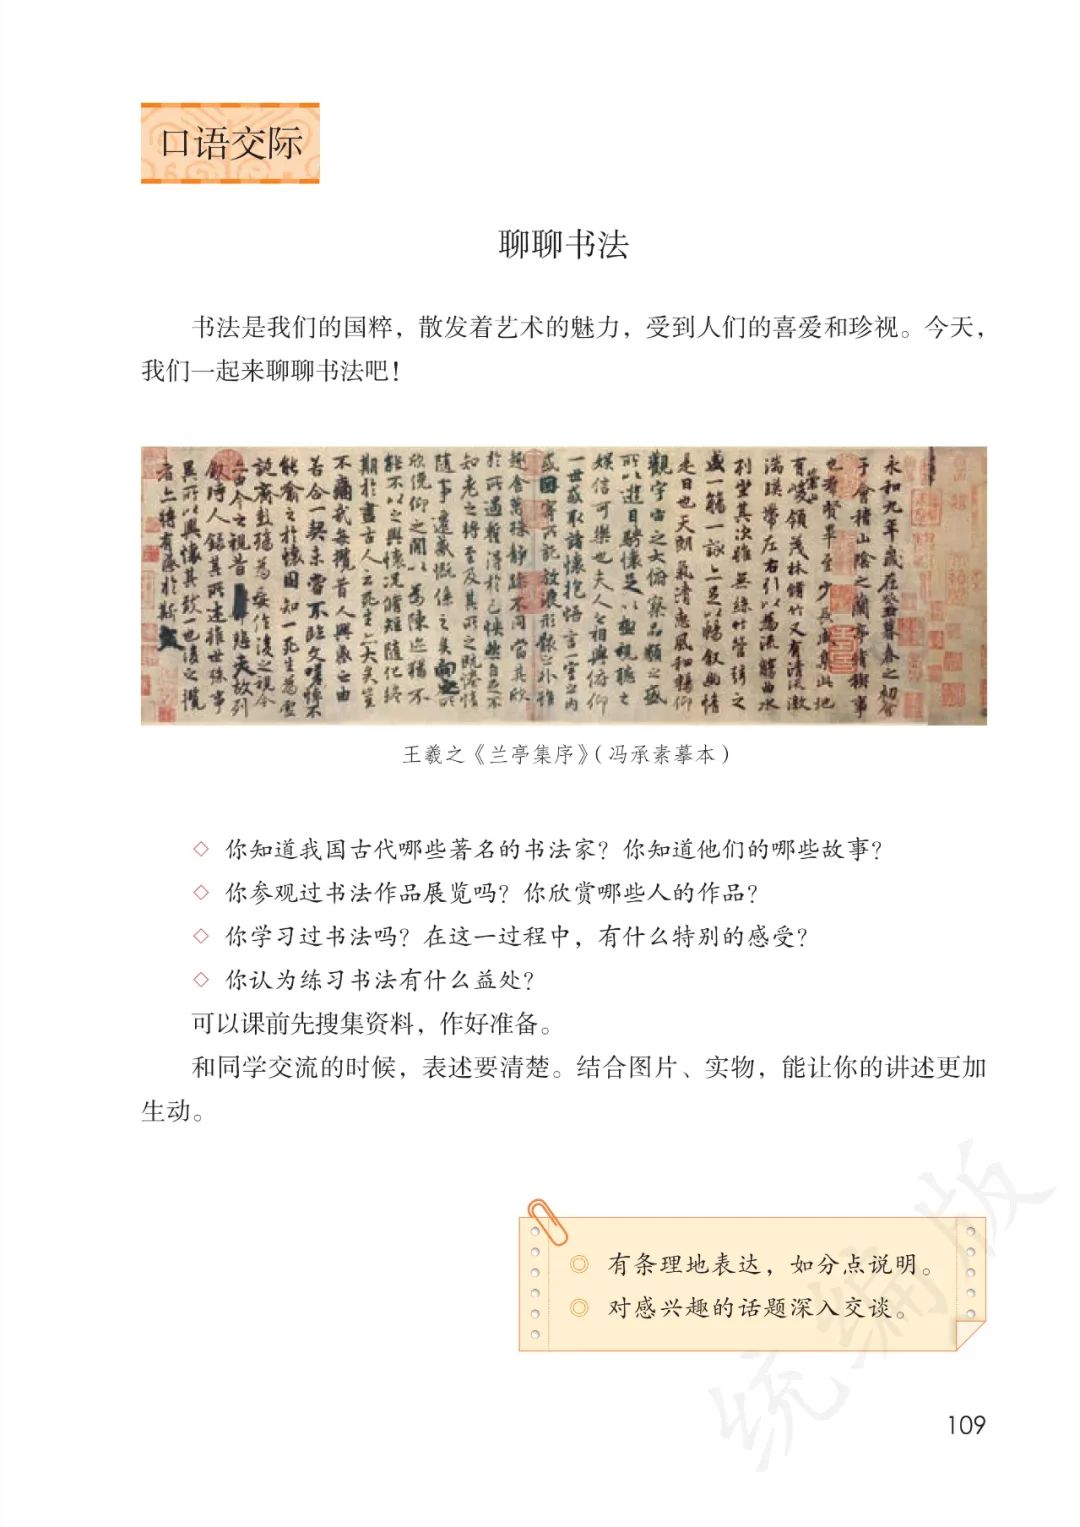 口语交际
聊聊书法
书法是我们的国粹，散发着艺术的魅力，受到人们的喜爱和珍视。今天，
我们一起来聊聊书法吧！
永和九年歲在癸丑暮春之初會
于會稽山陰之蘭亭脩稧事
也群賢畢至少長咸集此地
有崇山峻領茂林脩竹又有清流激
湍暎帶左右引以為流觴曲水
列坐其次雖無絲竹管弦之
盛一觴一詠亦足以暢敘幽情
是日也天朗氣清惠風和暢仰
觀宇宙之大俯察品類之盛
所以遊目騁懷足以極視聽之
娛信可樂也夫人之相與俯仰
一世或取諸懷抱悟言一室之內
或因寄所託放浪形骸之外雖
趣舍萬殊靜躁不同當其欣
於所遇暫得於己怏然自足不
知老之將至及其所之既惓情
隨事遷感慨係之矣向之所
欣俛仰之閒以為陳迹猶不
能不以之興懷況脩短隨化終
期於盡古人云死生亦大矣豈
不痛哉每攬昔人興感之由
若合一契未嘗不臨文嗟悼不
能喻之於懷固知一死生為虛
誕齊彭殤為妄作後之視今
亦由今之視昔悲夫故列
敘時人錄其所述雖世殊事
異所以興懷其致一也後之攬
者亦將有感於斯文
王羲之《兰亭集序》（冯承素摹本）
◇ 你知道我国古代哪些著名的书法家？你知道他们的哪些故事？
◇ 你参观过书法作品展览吗？你欣赏哪些人的作品？
◇ 你学习过书法吗？在这一过程中，有什么特别的感受？
◇ 你认为练习书法有什么益处？
可以课前先搜集资料，作好准备。
和同学交流的时候，表述要清楚。结合图片、实物，能让你的讲述更加
生动。
◎ 有条理地表达，如分点说明。
◎ 对感兴趣的话题深入交谈。
统编版
109